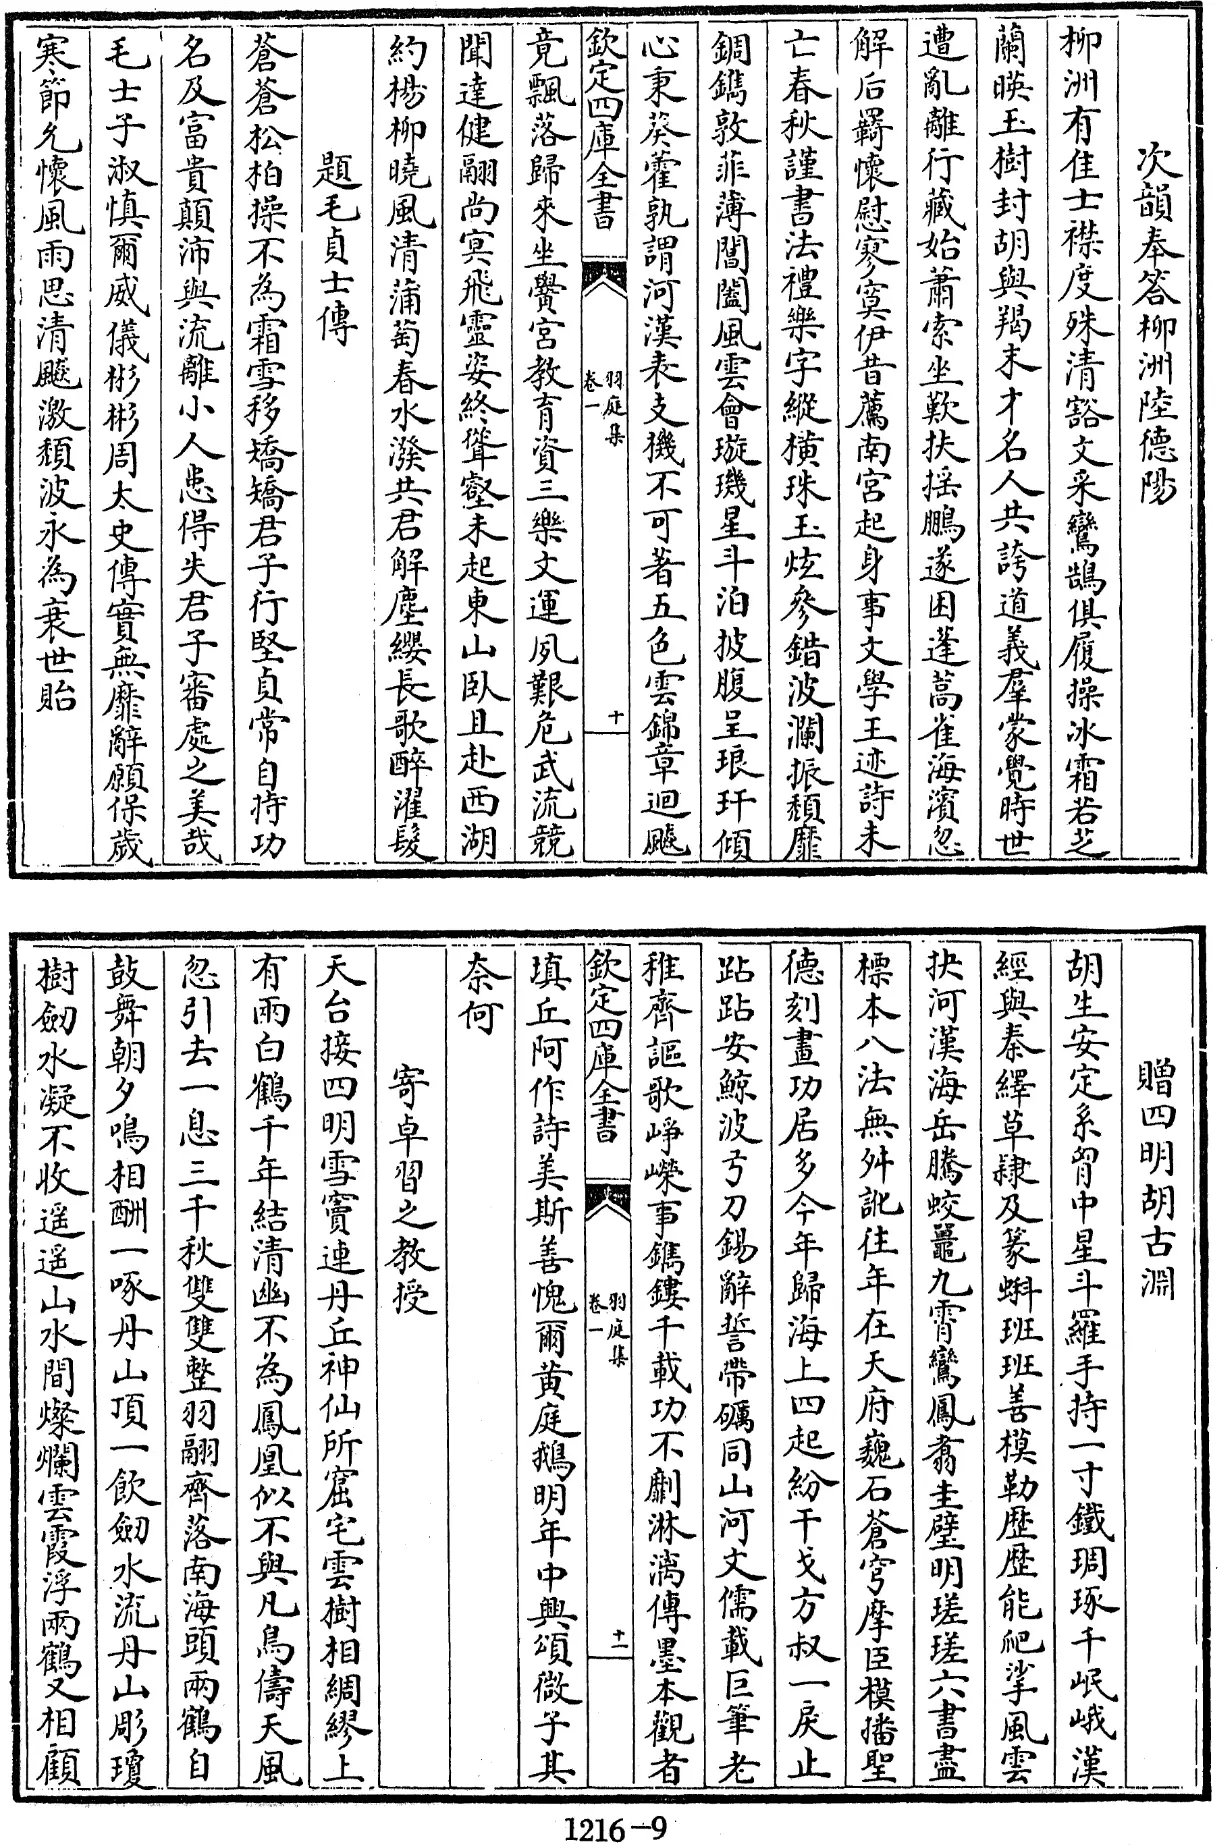 次韻奉答柳洲陸德陽
柳洲有佳士襟度殊清豁文采鸞鵠俱履操冰霜若芝
蘭暎玉樹封胡與羯末才名人共誇道義羣蒙覺時世
遭亂離行藏始蕭索坐歎扶揺鵬遂困蓬蒿雀海濱忽
解后羇懷慰寥寞伊昔薦南宮起身事文學王迹詩未
亡春秋謹書法禮樂字縱橫珠玉炫參錯波瀾振頽靡
錮鐫敦菲薄閶闔風雲會璇璣星斗泊披腹呈琅玕傾
心秉葵藿孰謂河漢表支機不可著五色雲錦章迴飈
欽定四庫全書
羽庭集
卷一
十
竟飄落歸來坐黌宮教育資三樂文運夙艱危武流競
聞達健翮尚㝠飛靈姿終聳壑未起東山卧且赴西湖
約楊柳曉風清蒲萄春水潑共君解塵纓長歌醉濯髮
題毛貞士傳
蒼蒼松柏操不為霜雪移矯矯君子行堅貞常自持功
名及富貴顛沛與流離小人患得失君子審處之美哉
毛士子淑慎爾威儀彬彬周太史傳實無靡辭願保歲
寒節允懷風雨思清飈激頽波永為衰世貽
贈四明胡古淵
胡生安定系胷中星斗羅手持一寸鐵琱琢千岷峨漢
經與秦繹草隸及篆蝌班班善模勒歴歴能爬挲風雲
抉河漢海岳騰蛟鼉九霄鸞鳳翥圭璧明瑳瑳六書盡
標本八法無舛訛往年在天府巍石蒼穹摩臣模播聖
德刻畫功居多今年歸海上四起紛干戈方叔一戾止
跕跕安鯨波弓刀錫辭誓帶礪同山河文儒載巨筆老
稚齊謳歌崢嶸事鐫鏤千載功不劘淋漓傳墨本觀者
欽定四庫全書
羽庭集
卷一
十一
填丘阿作詩美斯善愧爾黄庭鵝明年中興頌微子其
奈何
寄卓習之教授
天台接四明雪竇連丹丘神仙所窟宅雲樹相綢繆上
有兩白鶴千年結清幽不為鳳凰似不與凡鳥儔天風
忽引去一息三千秋雙雙整羽翮齊落南海頭兩鶴自
鼓舞朝夕鳴相酬一啄丹山頂一飲劒水流丹山彫瓊
樹劒水凝不收遥遥山水間燦爛雲霞浮兩鶴又相顧
1216-9